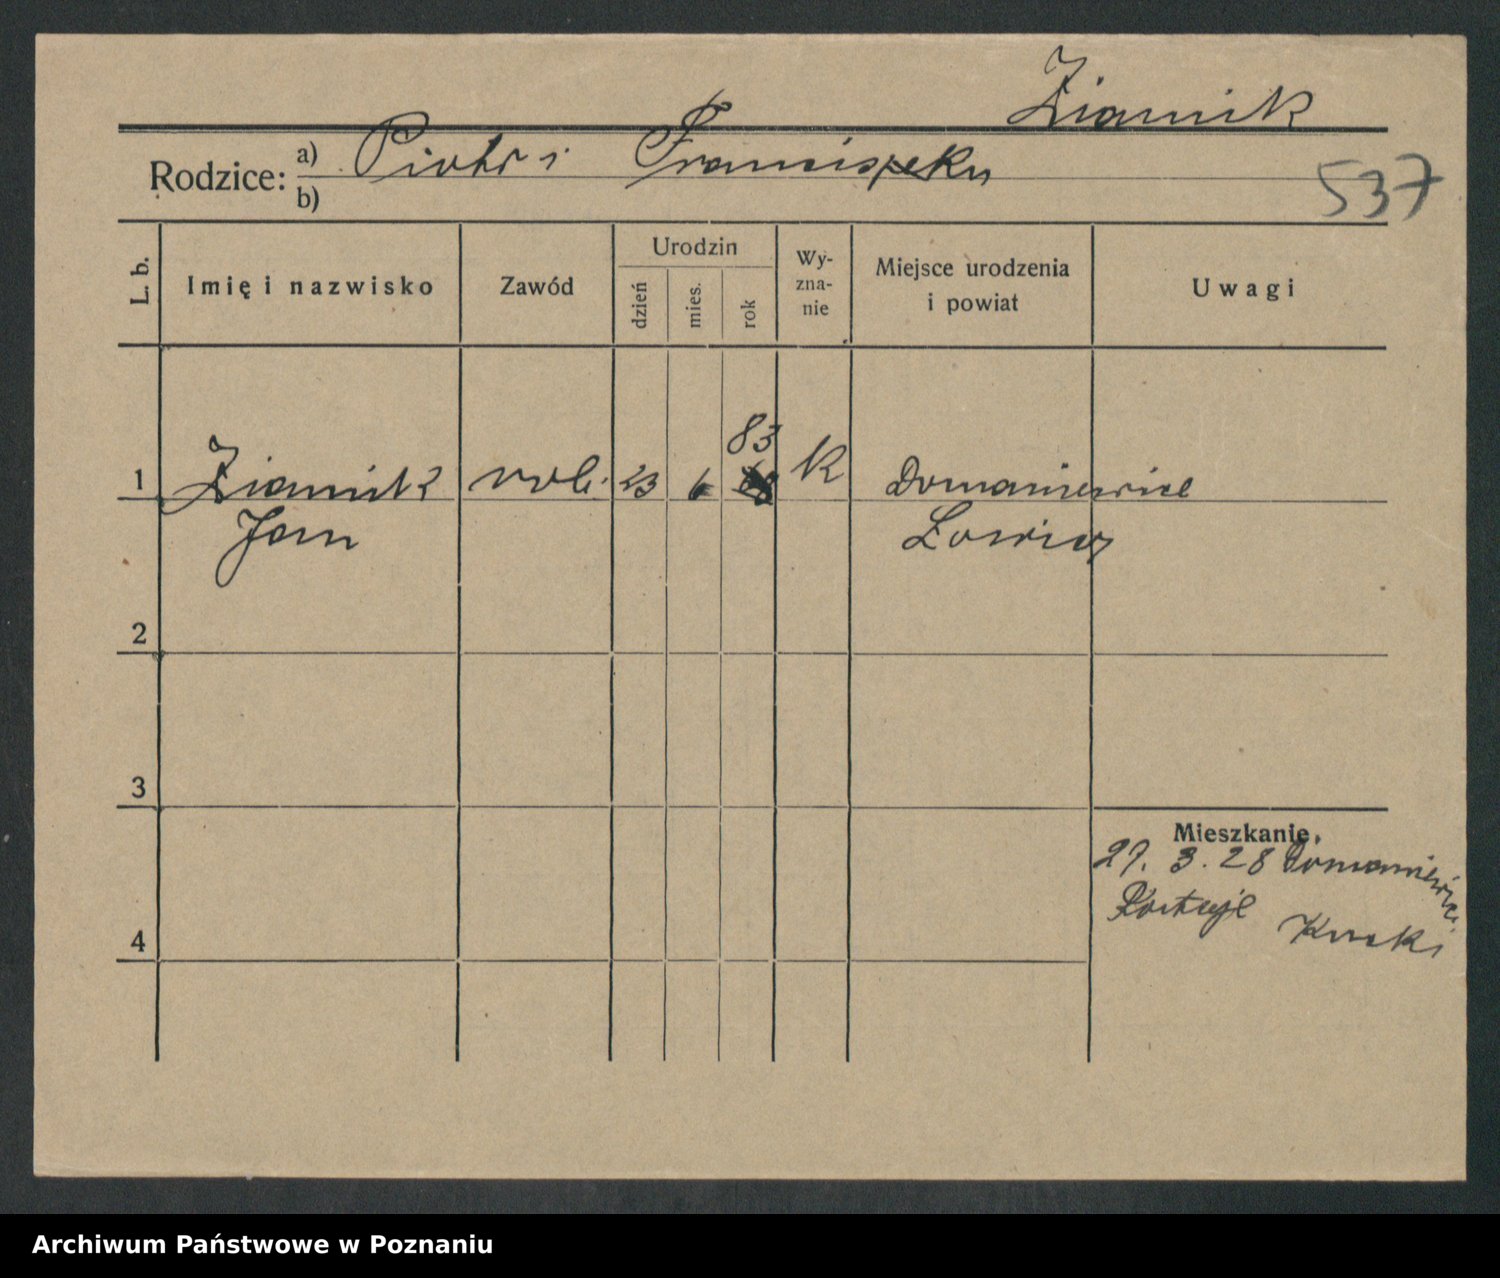 Ziarnik
Rodzice: a) Piotr i Franciszka
b)
537
L. b.
Imię i nazwisko
Zawód
Urodzin
dzień
mies.
rok
Wy-
zna-
nie
Miejsce urodzenia
i powiat
Uwagi
83
1 Ziarnik rob. 23 6 K Domaniewice
Jan Łowicz
2
3
Mieszkanie.
27. 3. 28 Domaniewice
4
Archiwum Państwowe w Poznaniu